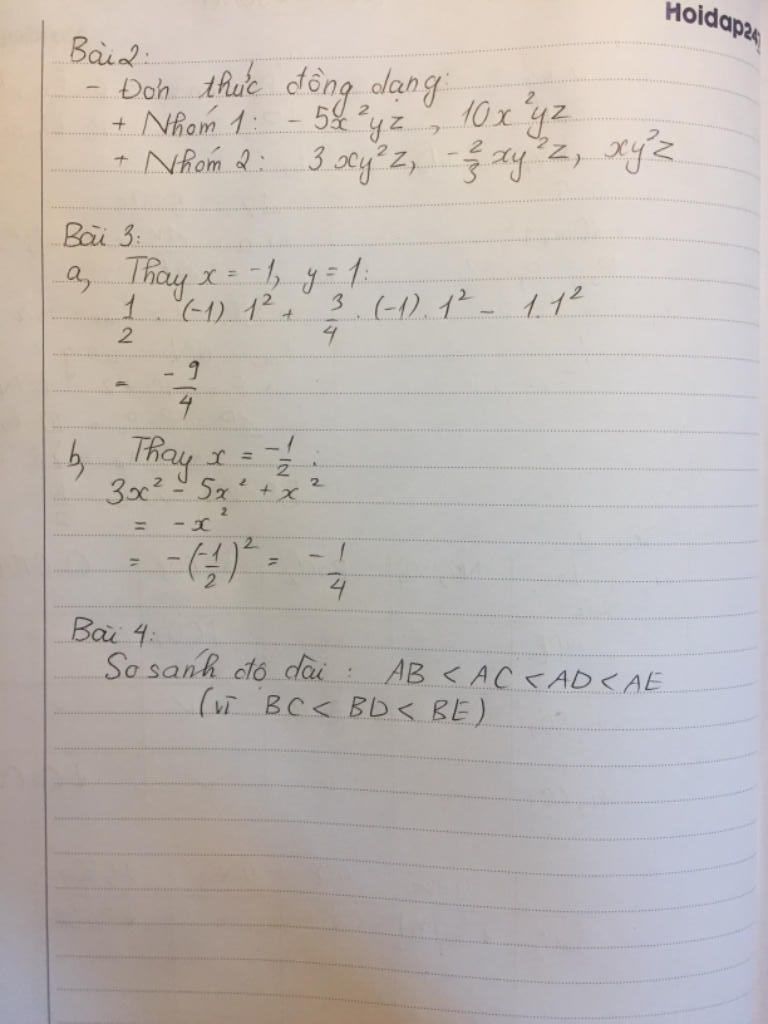 Hoidap247
Bài 2:
- Đơn thức đồng dạng:
+ Nhóm 1: - 5x²yz, 10x²yz
+ Nhóm 2: 3xy²z, -2/3 xy²z, xy²z
Bài 3:
a, Thay x = -1, y = 1:
1/2 . (-1) 1² + 3/4 . (-1). 1² - 1.1²
= -9/4
b, Thay x = -1/2 :
3x² - 5x² + x²
= -x²
= -(-1/2)² = -1/4
Bài 4:
So sánh độ dài : AB < AC < AD < AE
(vì BC < BD < BE)